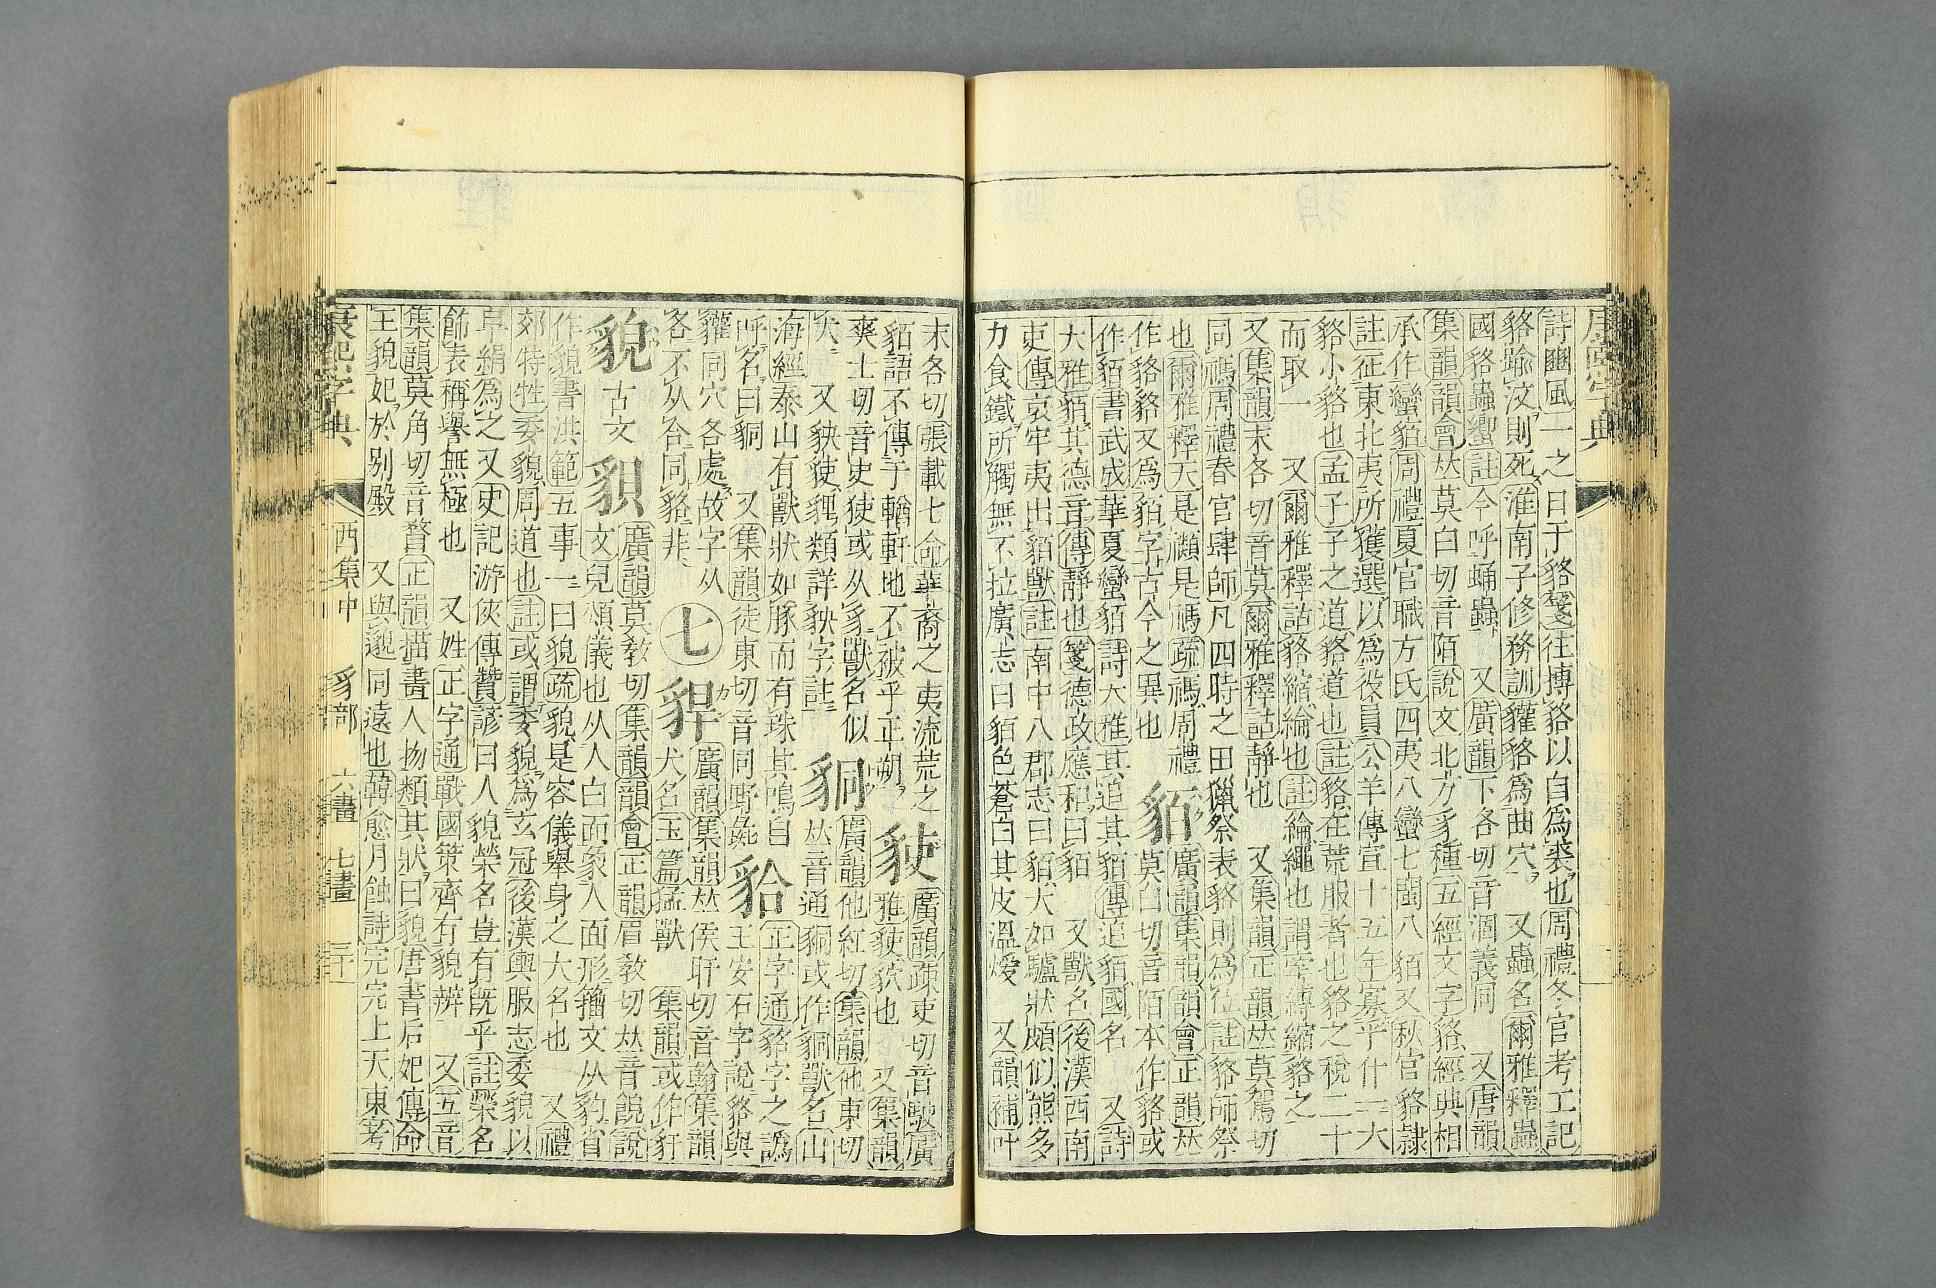 詩豳風一之日于貉箋往搏貉以自為裘也周禮冬官考工記
貉踰汶則死淮南子修務訓貛貉為曲穴又蟲名爾雅釋蟲
國貉蟲蠁註今呼蛹蟲又廣韻下各切音涸義同又唐韻
集韻韻會𠀤莫白切音陌說文北方豸種五經文字貉經典相
承作蠻貊周禮夏官職方氏四夷八蠻七閩八貊又秋官貉隸
註征東北夷所獲選以為役員公羊傳宣十五年寡乎什一大
貉小貉也孟子子之道貉道也註貉在荒服者也貉之稅二十
而取一又爾雅釋詁貉縮綸也註綸繩也謂牽縛縮貉之
又集韻末各切音莫爾雅釋詁靜也又集韻正韻𠀤莫駕切
同禡周禮春官肆師凡四時之田獵祭表貉則為位註貉師祭
也爾雅釋天是禷是禡疏禡周禮
作貉貉又為貊字古今之異也
貊廣韻集韻韻會正韻𠀤
莫白切音陌本作貉或
作貊書武成華夏蠻貊詩大雅其追其貊傳追貊國名又詩
大雅貊其德音傳靜也箋德政應和曰貊又獸名後漢西南
吏傳哀牢夷出貊獸註南中八郡志曰貊大如驢狀頗似熊多
力食鐵所觸無不拉廣志曰貊色蒼白其皮溫煖又韻補叶
末各切張載七命華裔之夷流荒之
貊語不傳于輶軒地不被乎正朔
䝡廣韻疎吏切音駛廣
雅䝡䝘也又集韻
爽士切音史使或从豕獸名似
犬又䝘䝡貍類詳䝘字註
狪廣韻他紅切集韻他東切
𠀤音通狪或作狪獸名山
海經泰山有獸狀如豚而有珠其鳴自
呼名曰狪又集韻徒東切音同野彘
貛同穴各處故字从
各不从合同貉非
貉正字通貉字之譌
王安石字說貉與
七
䝧廣韻集韻𠀤侯旰切音翰集韻
犬名玉篇猛獸集韻或作豻
貌古文䫉
廣韻莫教切集韻韻會正韻眉教切𠀤音䫉說
文皃頌儀也从人白面象人面形籀文从豹省
作貌書洪範五事一曰貌疏貌是容儀舉身之大名也又禮
郊特牲委貌周道也註或謂委貌為玄冠後漢輿服志委貌以
皁絹為之又史記游俠傳贊諺曰人貌榮名豈有旣乎註榮名
飾表稱譽無極也又姓正字通戰國策齊有貌辨又五音
集韻莫角切音瞀正韻描畫人物類其狀曰貌唐書后妃傳命
工貌妃於別殿又與邈同遠也韓愈月蝕詩完完上天東考
康熙字典
酉集中 豸部 六畫 七畫